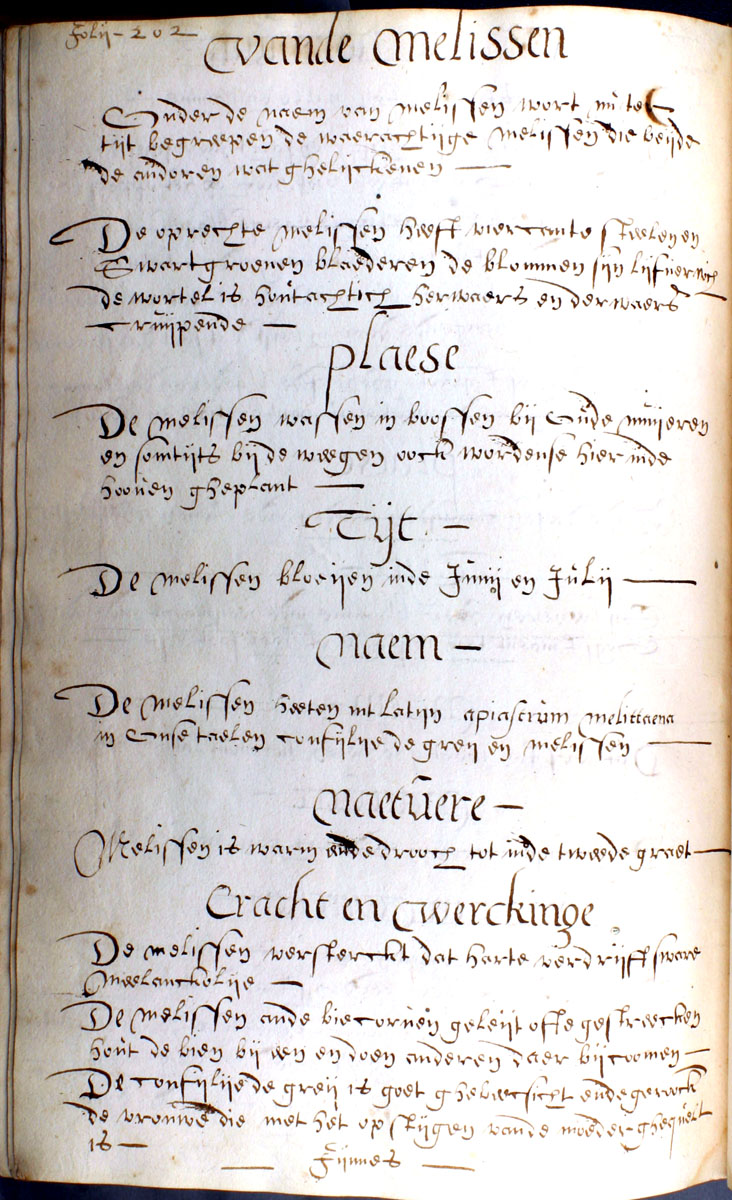 Folij - 202
Vande Melissen
Onder de naem van melissen wort in te
tijt begreepen de waerachtijge melissen die beijde
de anderen wat ghelijckenen —
De oprechte melissen heeft viercante steelen en
Swartgroenen bladeren de blommen sijn lijfverwich
de wortel is houtachtich herwaers en derwaers
cruijpende —
plaese
De melissen wassen in bossen bij Oude muijeren
en somtijts bij de weegen oock wordense hier inde
hooven gheplant —
Tijt —
De melissen bloeijen inde Junij en Julij —
Naem —
De melissen heeten int latijn apiastrum melittaena
in Onse taelen confijlije de greij en melissen —
Naetuere —
Melissen is warm ende drooch tot inde tweede graet —
Cracht en Werckinge
De melissen versterckt dat harte verdrijft sware
Meelanckolije —
De melissen ande biecorven geleijt ofte gestreecken
hout de bien bij een en doen anderen daer bij coomen —
De confijlije de greij is goet ghebeesicht ende geroockt
de vrouwe die met het opstijgen vande moeder ghequelt
is —
— Fijnnes —